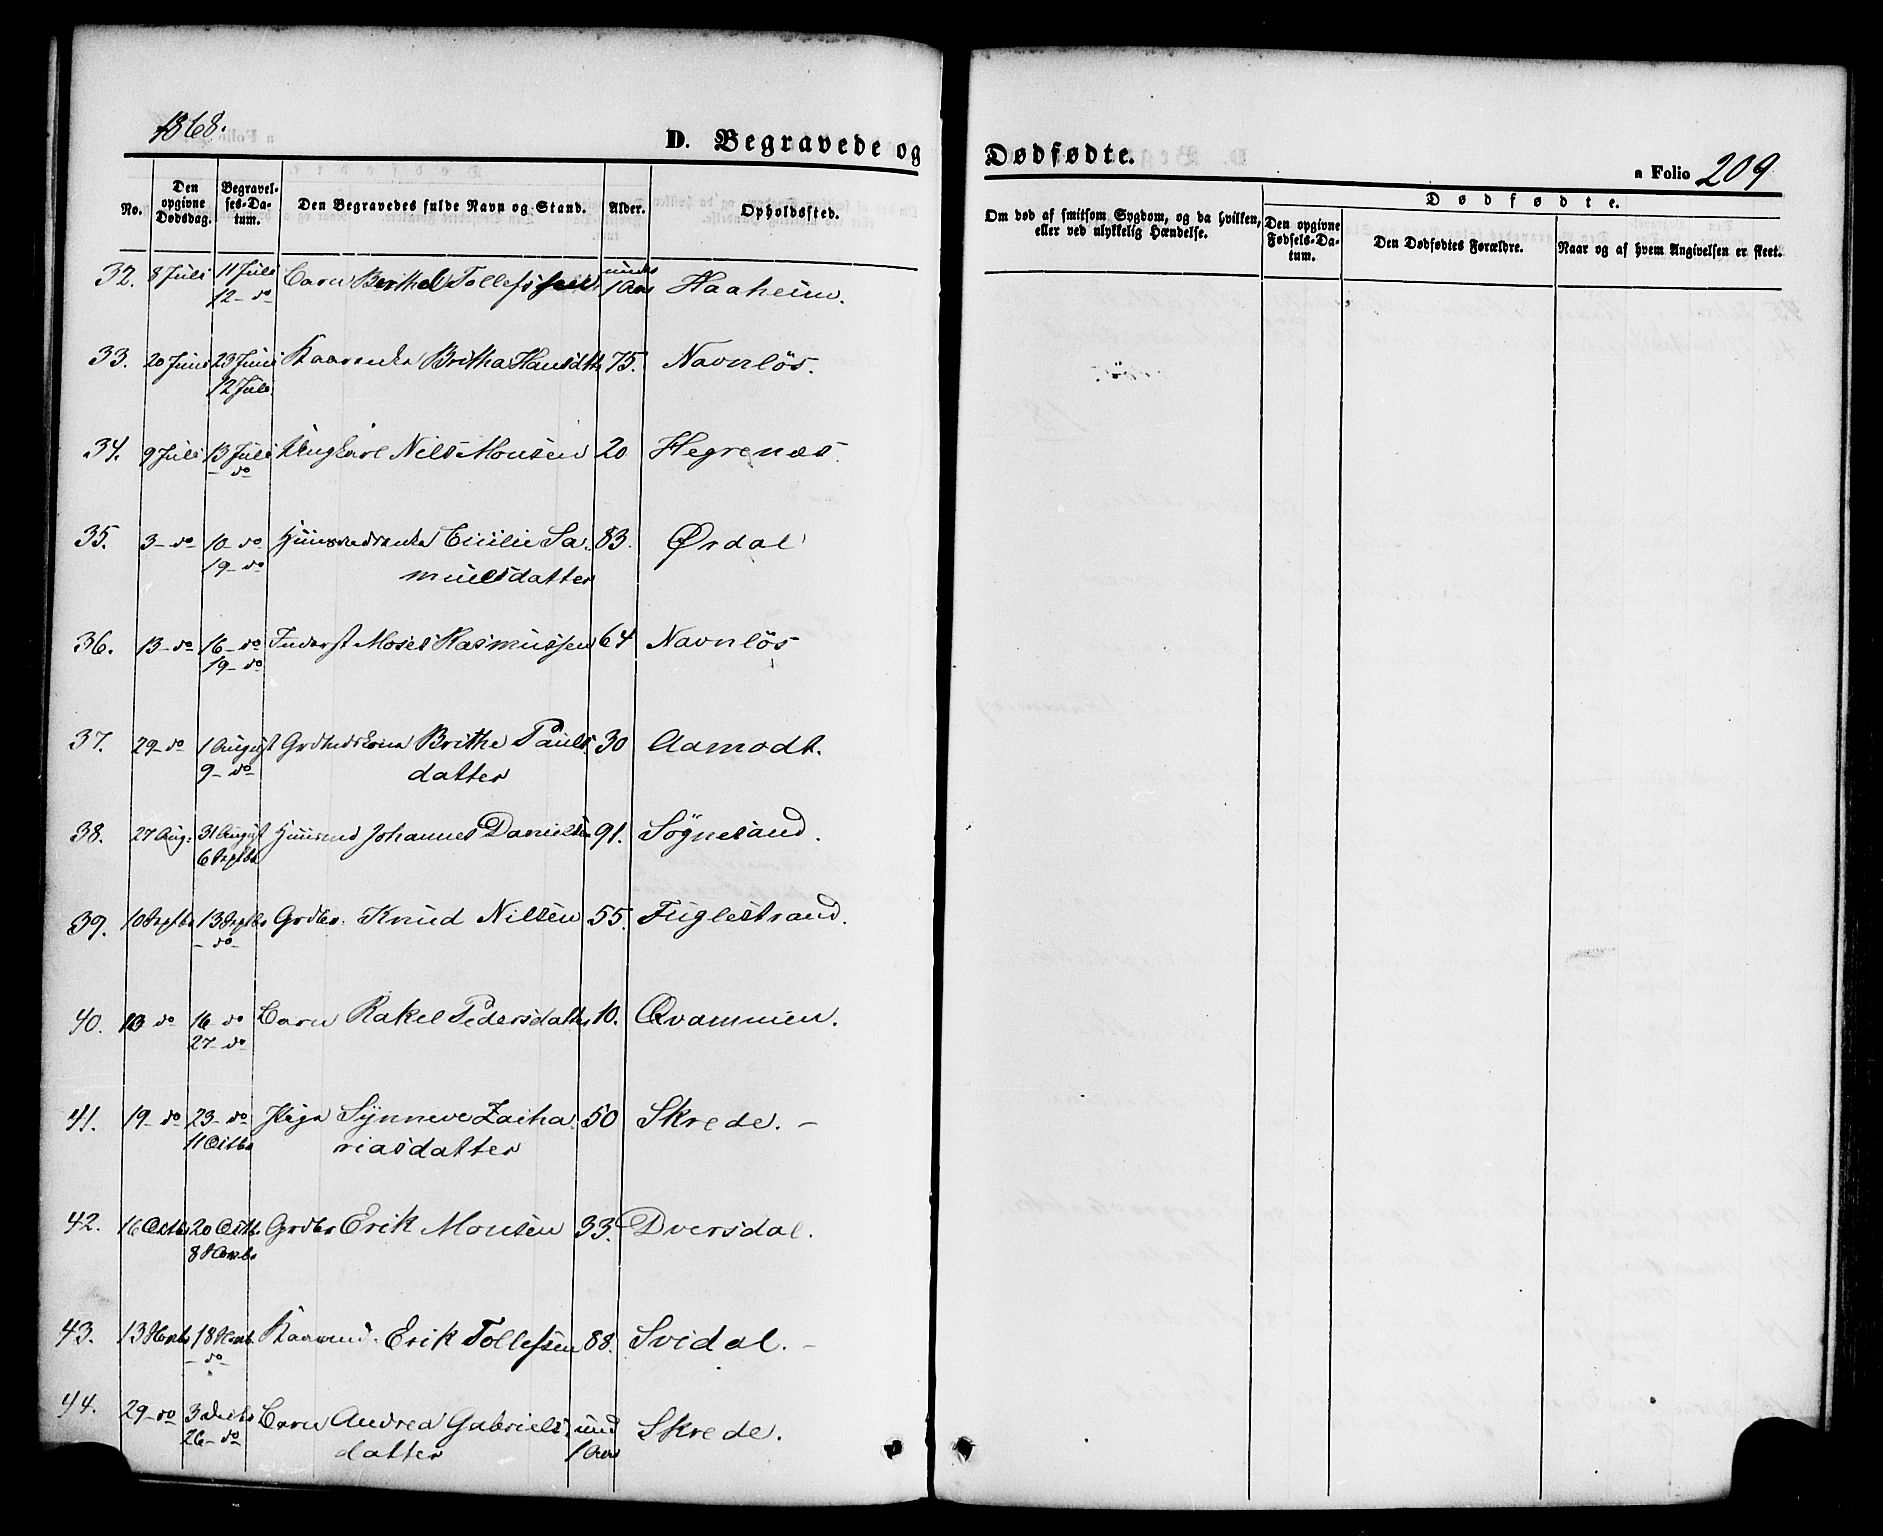 1868.
D. Begravede og Dødfødte.
a Folio 209
No.
Den opgivne Dødsdag.
Begravelses-Datum.
Den Begravedes fulde Navn og Stand.
Alder.
Opholdssted.
Om død af smitsom Sygdom, og da hvilken, eller ved ulykkelig Hændelse.
Dødfødte.
Den opgivne Fødsels-Datum.
Den Dødfødtes Forældre.
Naar og af hvem Angivelsen er skeet.
32. 8 Juli 11 Juli Barn Berthel Tollefs under Haaheim.
12 - do 1 Aar
33. 20 Juni 23 Juni Kaarenke Britha Hansdtr 75. Navnlös.
12 Juli
34. 9 Juli 13 Juli Ungkarl Nils Monsen 20 Hegrenæs
- do
35. 3 - do 10 - do Huusmdsenke Cicilie Sa- 83. Ørdal
19 - do muelsdatter
36. 13 - do 16 - do Inderst Moses Rasmussen 64 Navnlös
19 - do
37. 29 - do 1 August Grdmdskone Brithe Pauls- 30 Aamodt.
9 - do datter
38. 27 Aug. 31 August Huusmd Johannes Danielsen 91. Sögnesand.
6 Septbr
39. 10 Septbr 13 Septbr Grdbr. Knud Nilsen 55. Fuglestrand.
- do
40. 13 do 16 - do Barn Rakel Pedersdatter 10. Qvammen.
27 - do
41. 19 - do 23 - do Pige Synneve Zacha- 50 Skrede. -
11 Octbr riasdatter
42. 16 Octbr 20 Octb. Grdbr Erik Monsen 33. Dversdal.
8 Novbr
43. 13 Novbr 18 Novb. Kaarmd. Erik Tollefsen 88. Svidal. -
- do
44. 29 - do 3 Decbr Barn Andrea Gabriels- und Skrede.
26 - do datter 1 Aar